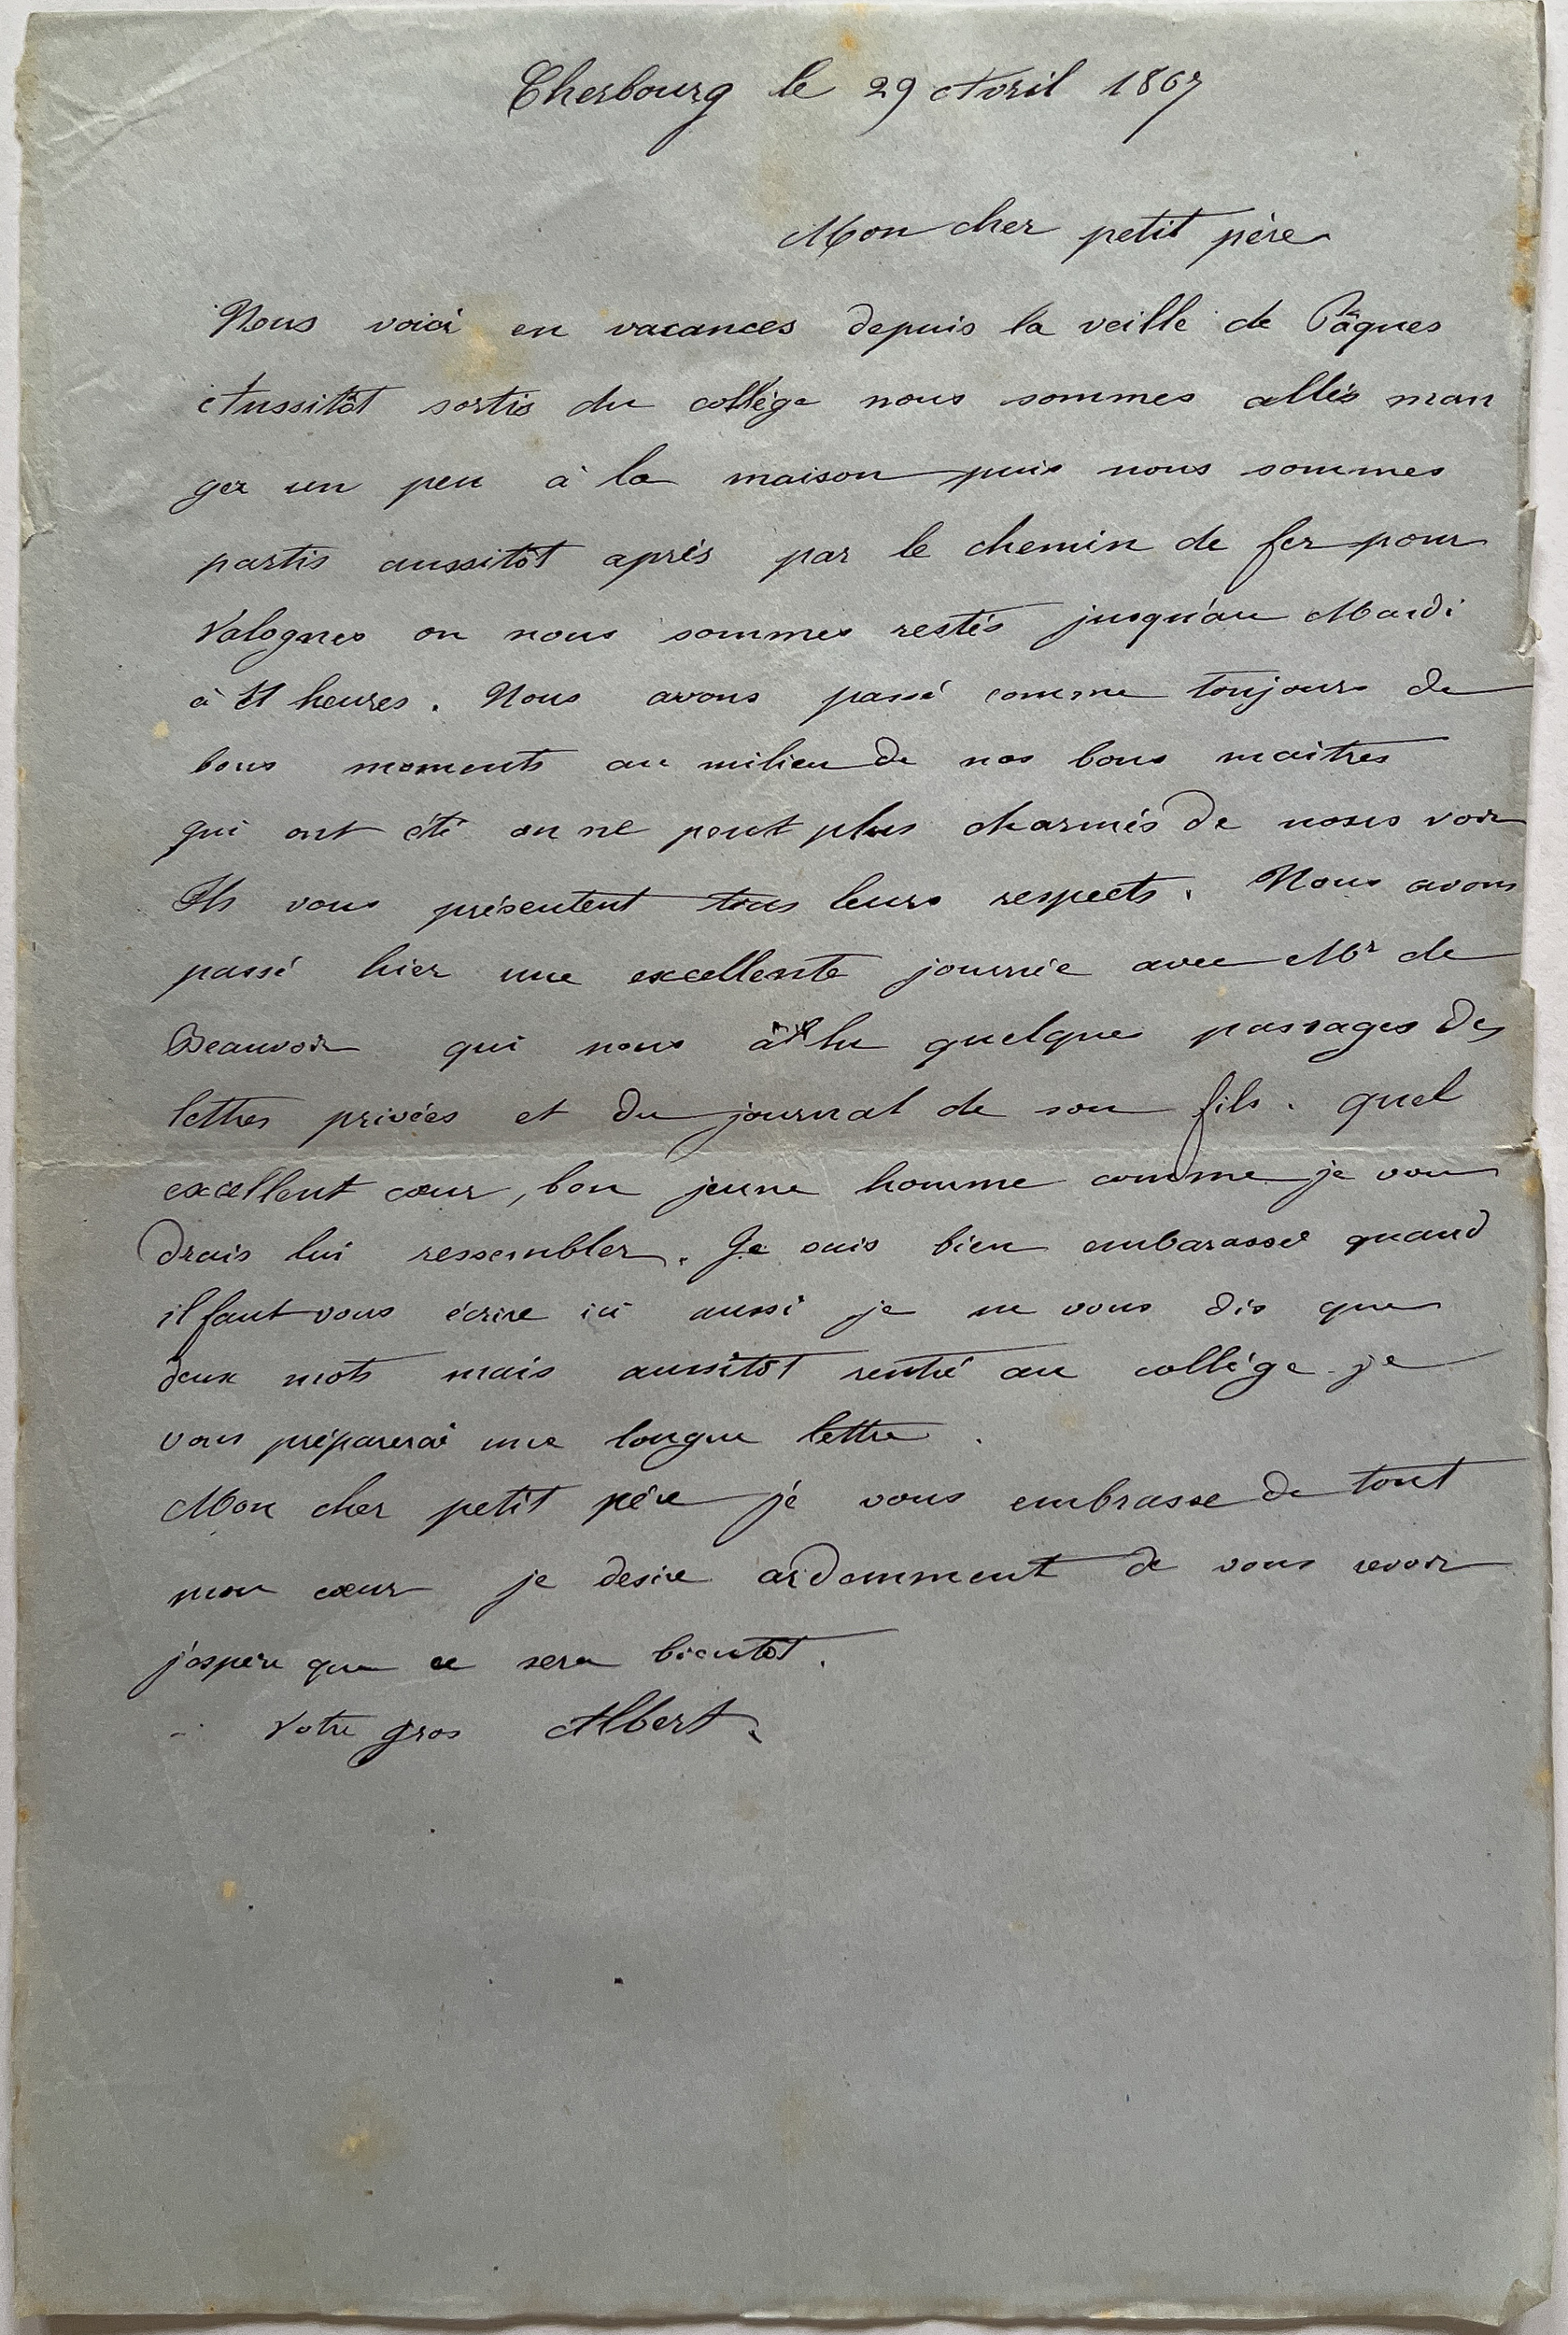 Cherbourg le 29 Avril 1867
Mon cher petit père
Nous voici en vacances depuis la veille de Pâques
Aussitôt sortis du collège nous sommes allés man
ger un peu à la maison puis nous sommes
partis aussitôt après par le chemin de fer pour
Valognes ou nous sommes restés jusqu'au Mardi
à 11 heures. Nous avons passé comme toujours de
bons moments au milieu de nos bons maitres
qui ont été on ne peut plus charmés de nous voir
Ils vous présentent tous leurs respects. Nous avons
passé hier une excellente journée avec Mr de
Beauvoir qui nous a lu quelques passages des
lettres privées et du journal de son fils. quel
excellent cœur, bon jeune homme comme je vou
drais lui ressembler. Je suis bien embarassé quand
il faut vous écrire ici aussi je ne vous dis que
deux mots mais aussitôt rentré au collège je
vous préparerai une longue lettre.
Mon cher petit père je vous embrasse de tout
mon cœur je desire ardemment de vous revoir
j'espère que ce sera bientôt.
Votre gros Albert.